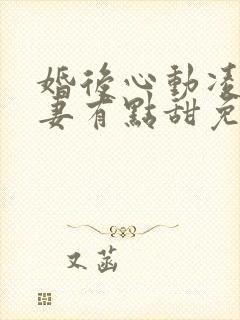 婚後心動凌
妻有點甜免
又菡